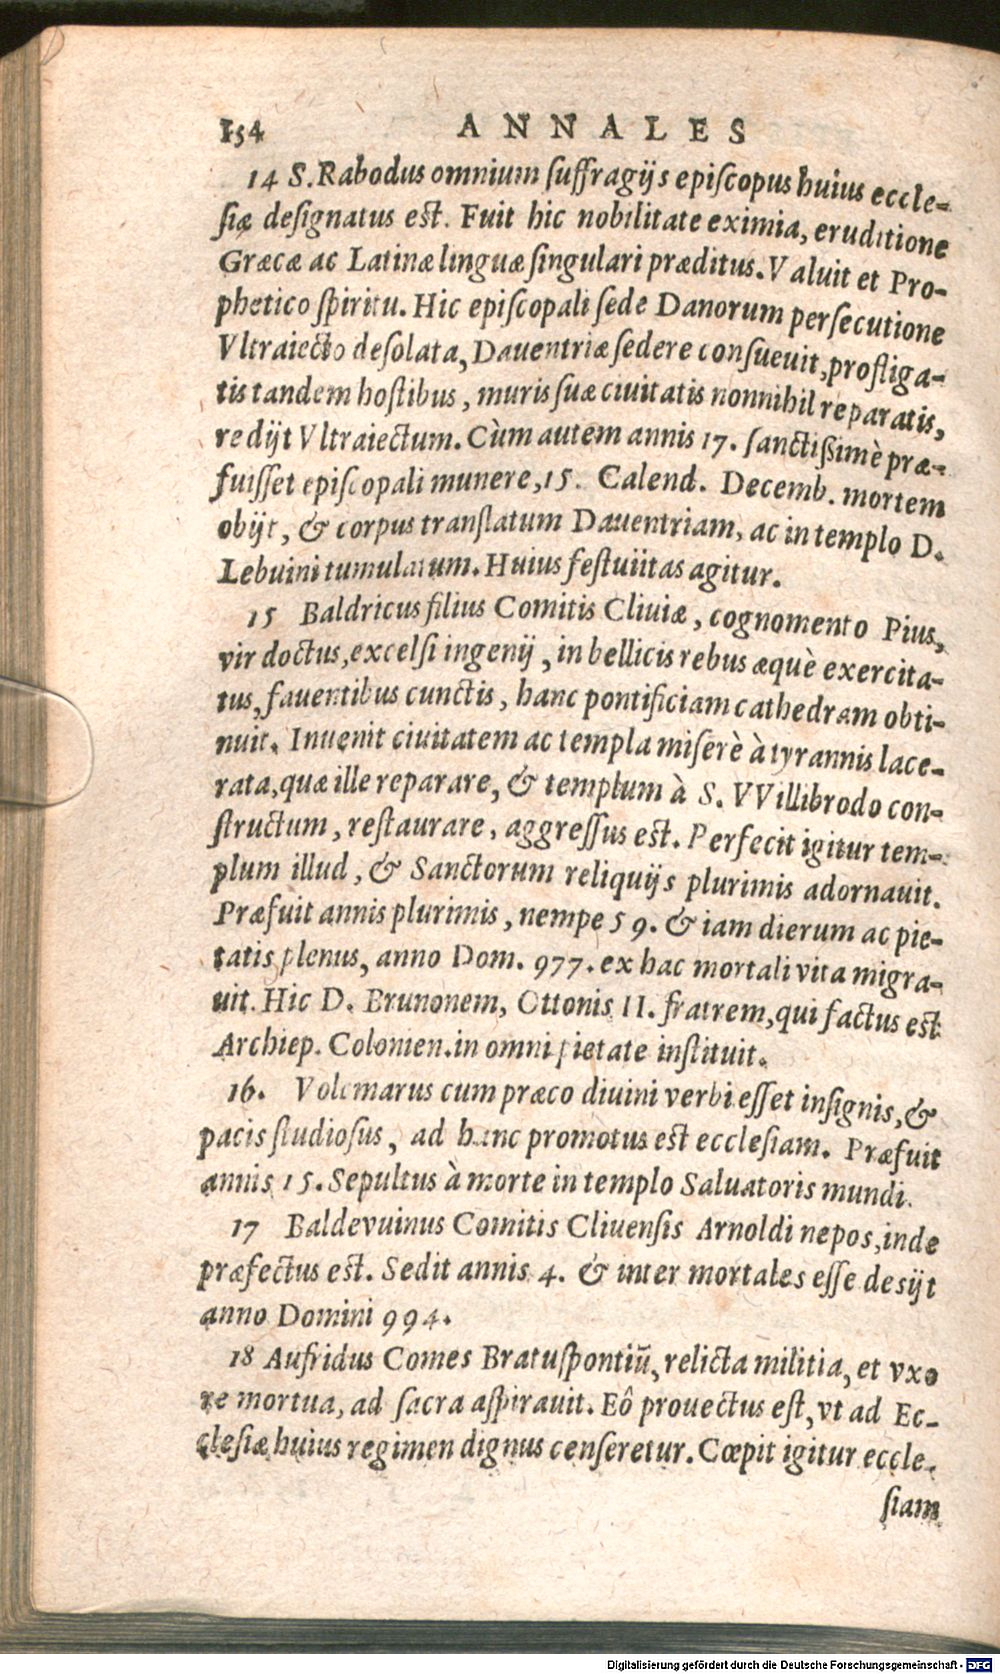 154 ANNALES
14 S. Rabodus omnium suffragijs episcopus huius eccle=
siæ designatus est. Fuit hic nobilitate eximia, eruditione
Græcæ ac Latinæ linguæ singulari præditus. Valuit et Pro-
phetico spiritu. Hic episcopali sede Danorum persecutione
Vltraiecto desolata, Dauentriæ sedere consueuit, profliga-
tis tandem hostibus, muris suæ ciuitatis nonnihil reparatis,
redijt Vltraiectum. Cùm autem annis 17. sanctißimè præ-
fuisset episcopali munere, 15. Calend. Decemb. mortem
obijt, & corpus translatum Dauentriam, ac in templo D.
Lebuini tumulatum. Huius festuiitas agitur.
15 Baldricus filius Comitis Cliuiæ, cognomento Pius,
vir doctus, excelsi ingenij, in bellicis rebus æquè exercita-
tus, fauentibus cunctis, hanc pontificiam cathedram obti-
nuit. Inuenit ciuitatem ac templa miserè à tyrannis lace-
rata, quæ ille reparare, & templum à S. VVillibrodo con-
structum, restaurare, aggressus est. Perfecit igitur tem-
plum illud, & Sanctorum reliquijs plurimis adornauit.
Præfuit annis plurimis, nempe 59. & iam dierum ac pie-
tatis plenus, anno Dom. 977. ex hac mortali vita migra-
uit. Hic D. Brunonem, Ottonis II. fratrem, qui factus est
Archiep. Colonien. in omni pietate instituit.
16. Volcmarus cum præco diuini verbi esset insignis, &
pacis studiosus, ad hanc promotus est ecclesiam. Præfuit
annis 15. Sepultus à morte in templo Saluatoris mundi.
17 Baldevuinus Comitis Cliuensis Arnoldi nepos, inde
præfectus est. Sedit annis 4. & inter mortales esse desijt
anno Domini 994.
18 Aufridus Comes Bratuspontiū, relicta militia, et vxo
re mortua, ad sacra aspirauit. Eô prouectus est, vt ad Ec-
clesiæ huius regimen dignus censeretur. Cœpit igitur eccle-
siam
Digitalisierung gefördert durch die Deutsche Forschungsgemeinschaft - DFG